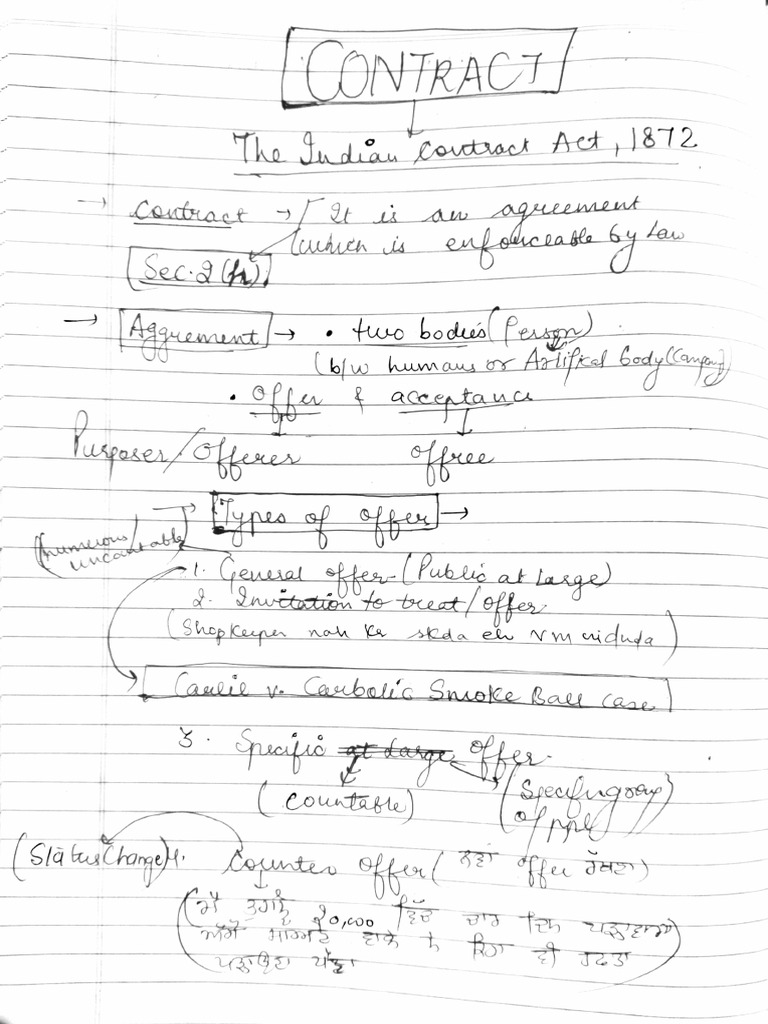 CONTRACT
The Indian Contract Act, 1872
→ Contract → It is an agreement
which is enforceable by law
Sec. 2(h)
→ Aggrement → • two bodies (Person)
(b/w humans or Artifical body (Company)
• Offer & acceptance
Purposer/Offerer offree
→ Types of offer →
(numerous/
uncountable)
1. General offer - (Public at large)
2. Invitation to treat/offer
(Shopkeeper nah kr skda eh
Carlil v. Carbolic Smoke Ball case
3. Specific at large offer.
(Countable) (Specific group
of ppl)
(Status Change) 4. Counter offer (ਨਵਾਂ offer ਰੱਖਣਾ)
(ਮੈਂ ਤੁਹਾਨੂੰ 20,000 ਵਿੱਚ ਚਾਰ ਦਿਨ
ਅੱਗੋਂ ਵਾਲੇ ਨੇ ਕਿਹਾ ਵੀ ਹਫਤਾ
ਪੜਾਉਣਾ ਪੈਣਾ